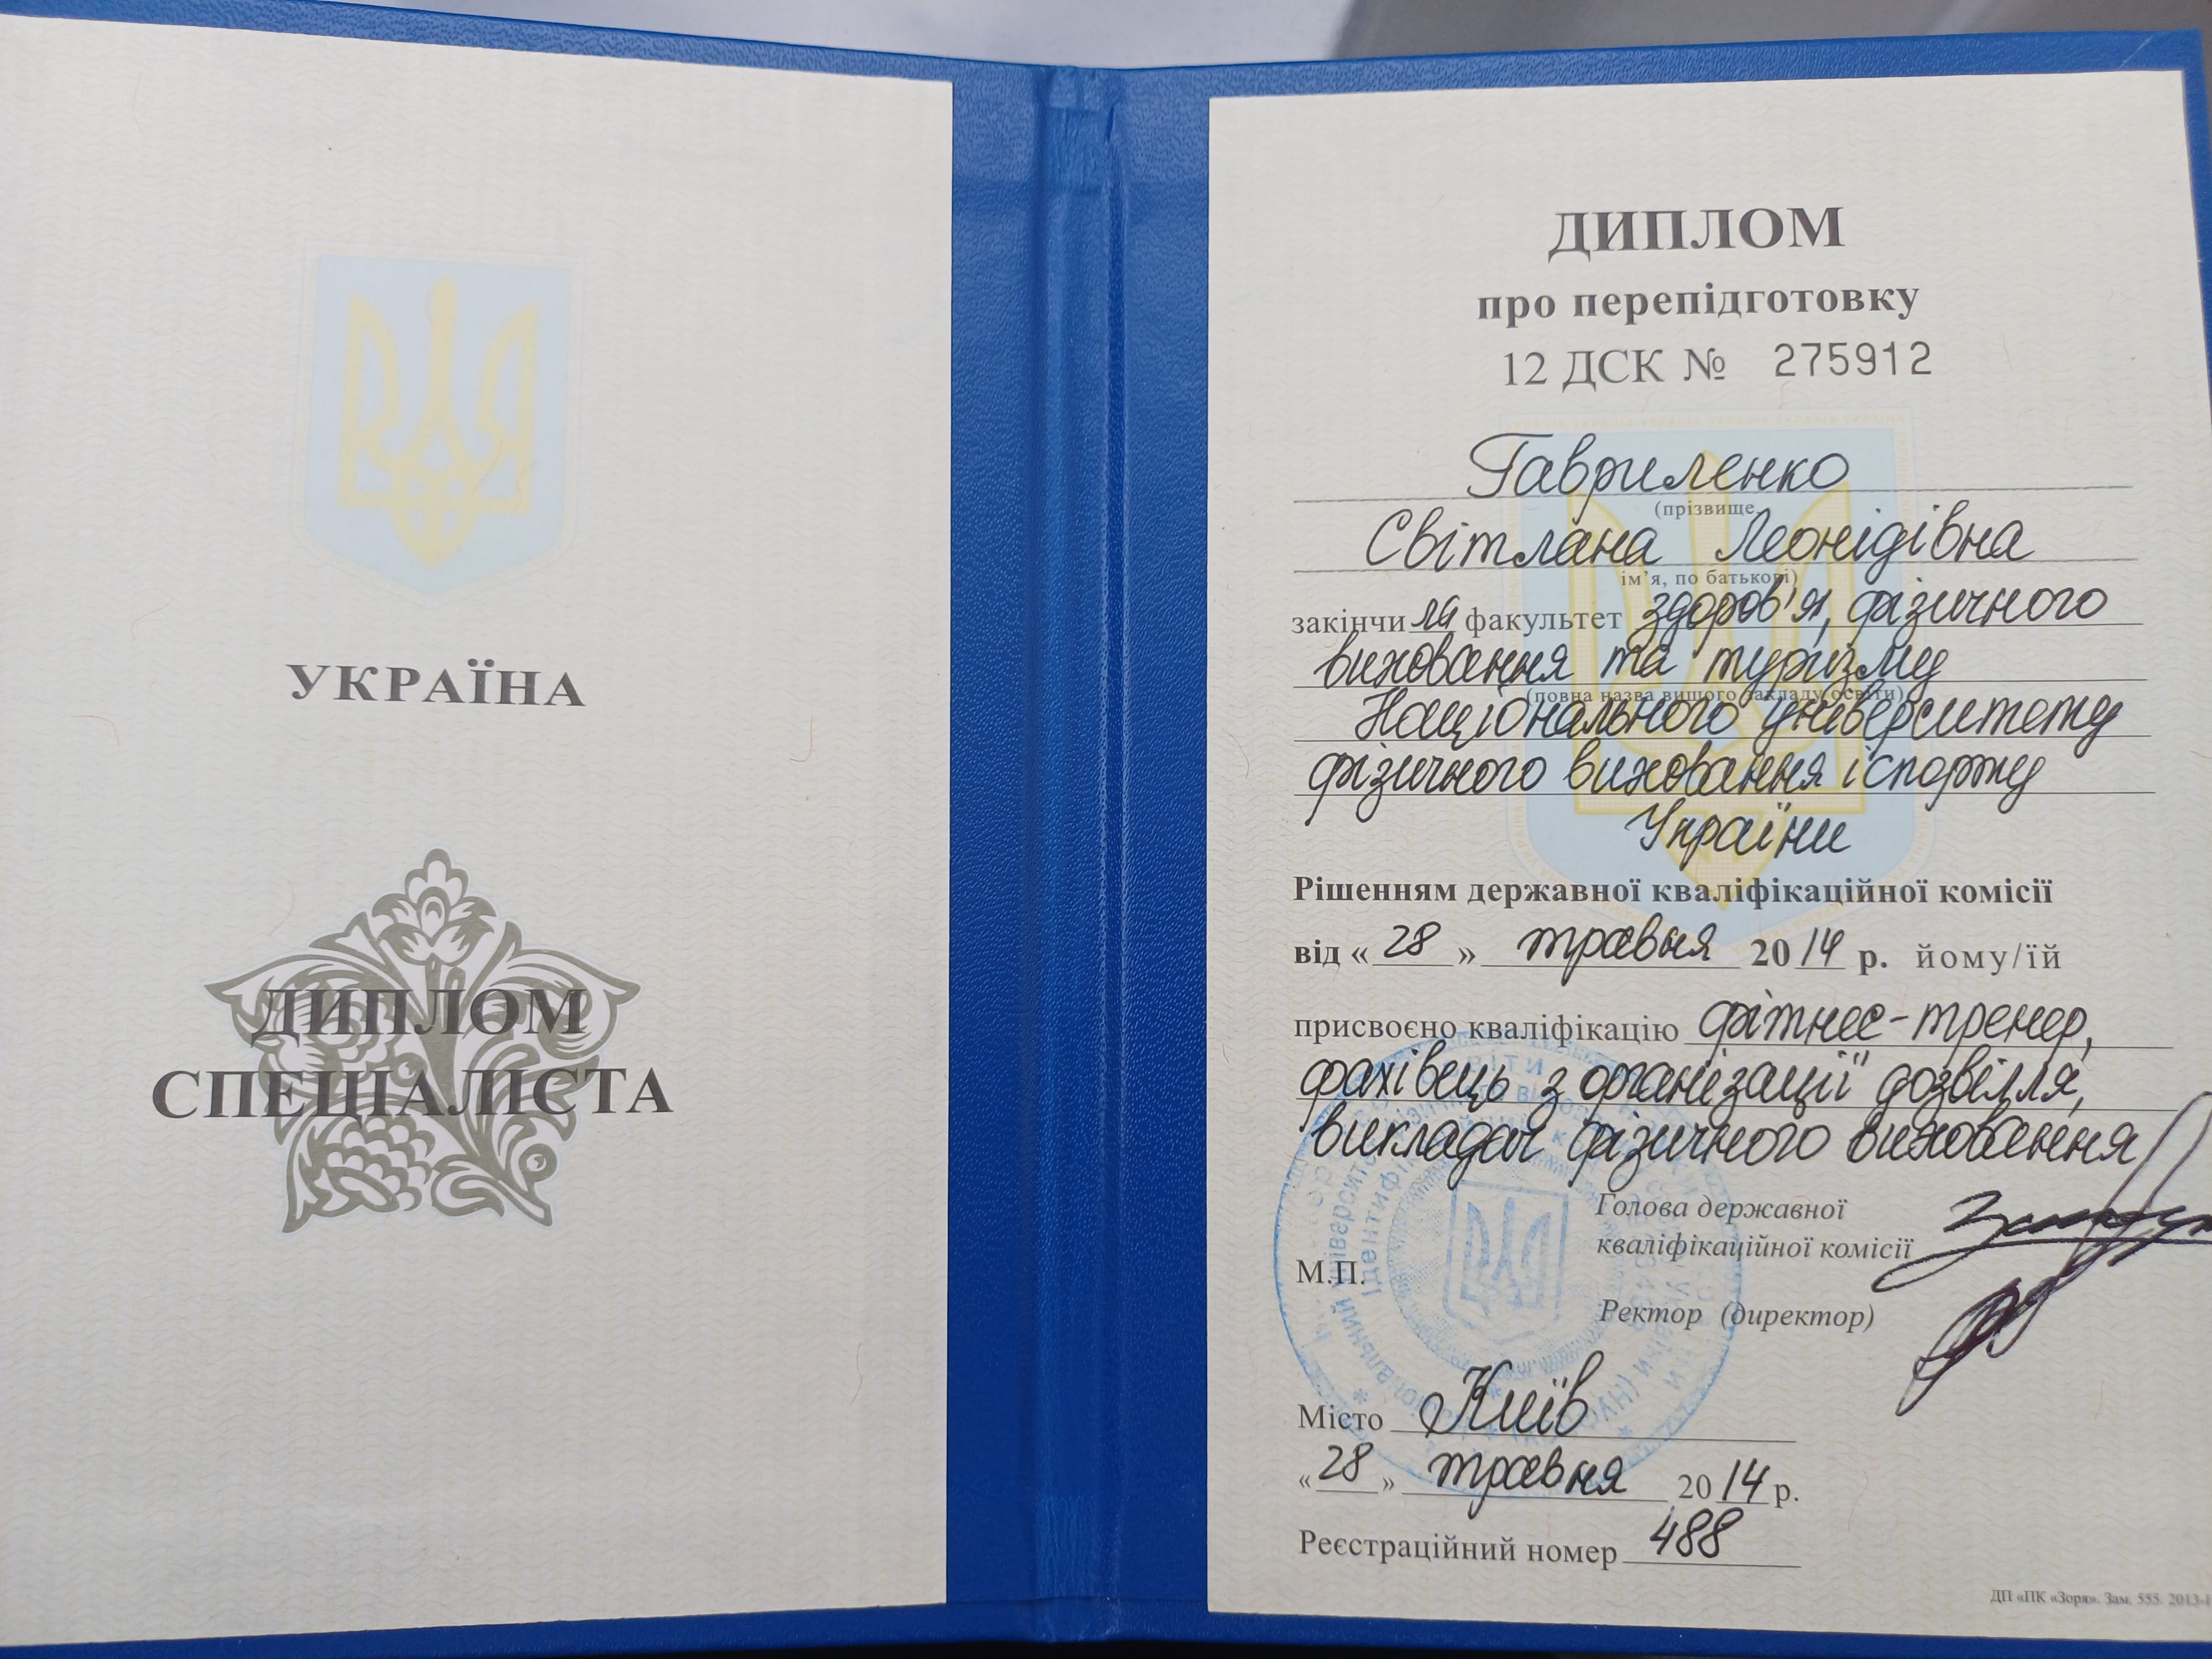 УКРАЇНА
ДИПЛОМ
СПЕЦІАЛІСТА
ДИПЛОМ
про перепідготовку
12 ДСК № 275912
Гавриленко
(прізвище,
Світлана Леонідівна
ім’я, по батькові)
закінчила факультет здоров'я, фізичного
виховання та туризму
(повна назва вищого закладу освіти)
Національного університету
фізичного виховання і спорту
України
Рішенням державної кваліфікаційної комісії
від « 28 » травня 2014 р. йому/їй
присвоєно кваліфікацію фітнес-тренер,
фахівець з організації дозвілля,
викладач фізичного виховання
Голова державної
кваліфікаційної комісії
М.П.
Ректор (директор)
Місто Київ
« 28 » травня 2014 р.
Реєстраційний номер 488
ДП «ПК «Зоря». Зам. 555. 2013